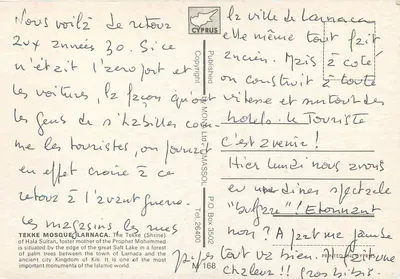 Nous voilà de retour
aux années 30. Si ce
n'était l'aéroport et
les voitures, la façon qu'ont
les gens de s'habiller com
me les touristes, on pourrait
en effet croire à ce
retour à l'avant guerre.
les magasins les rues
TEKKE MOSQUE, LARNACA. The Tekke (Shrine)
of Hala Sultan, foster mother of the Prophet Mohammed
is situated by the edge of the great Salt Lake in a forest
of palm trees between the town of Larnaca and the
ancient city Kingdom of Kiti. It is one of the most
important monuments of the Islamic world.
CYPRUS
Published
Copyright
Ltd LIMASSOL
P.O BOX 3502
Tel: 26400
N 168
la ville de Larnaca
elle même tout fait
ancien. Mais à côté
on construit à toute
vitesse et surtout des
hotels. le Touriste
c'est avenir!
Hier lundi nous avons
eu une diner spectacle
"bulgare"! Etonnant
non? A part me jambe
tout va bien. Il fait une
chaleur!! gros bibi